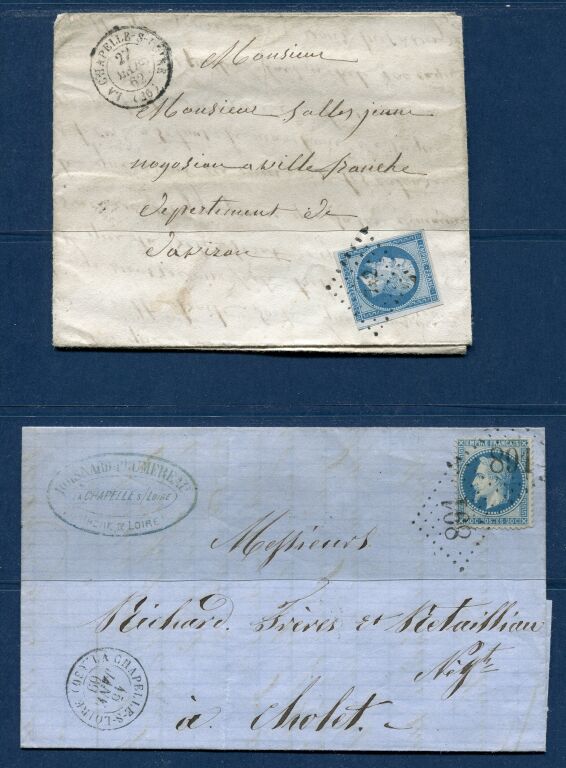 LA CHAPELLE-S-LOIRE (36)
27
MARS
62
Monsieur
Monsieur Salles jeune
nogosian a ville franche
departement de
Laviron
BONNARD-PLUMEREAU
LA CHAPELLE S/ LOIRE
INDRE & LOIRE
EMPIRE FRANÇAIS
20C POSTES 20C
891
891
Messieurs
Richard, Frères et Retailliau
Négts
à Cholet.
LA CHAPELLE-S-LOIRE (36)
JANV.
69